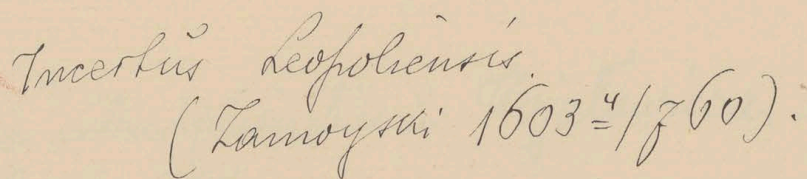 Incertus Leopoliensis.
(Zamoyski 1603⁴/760).